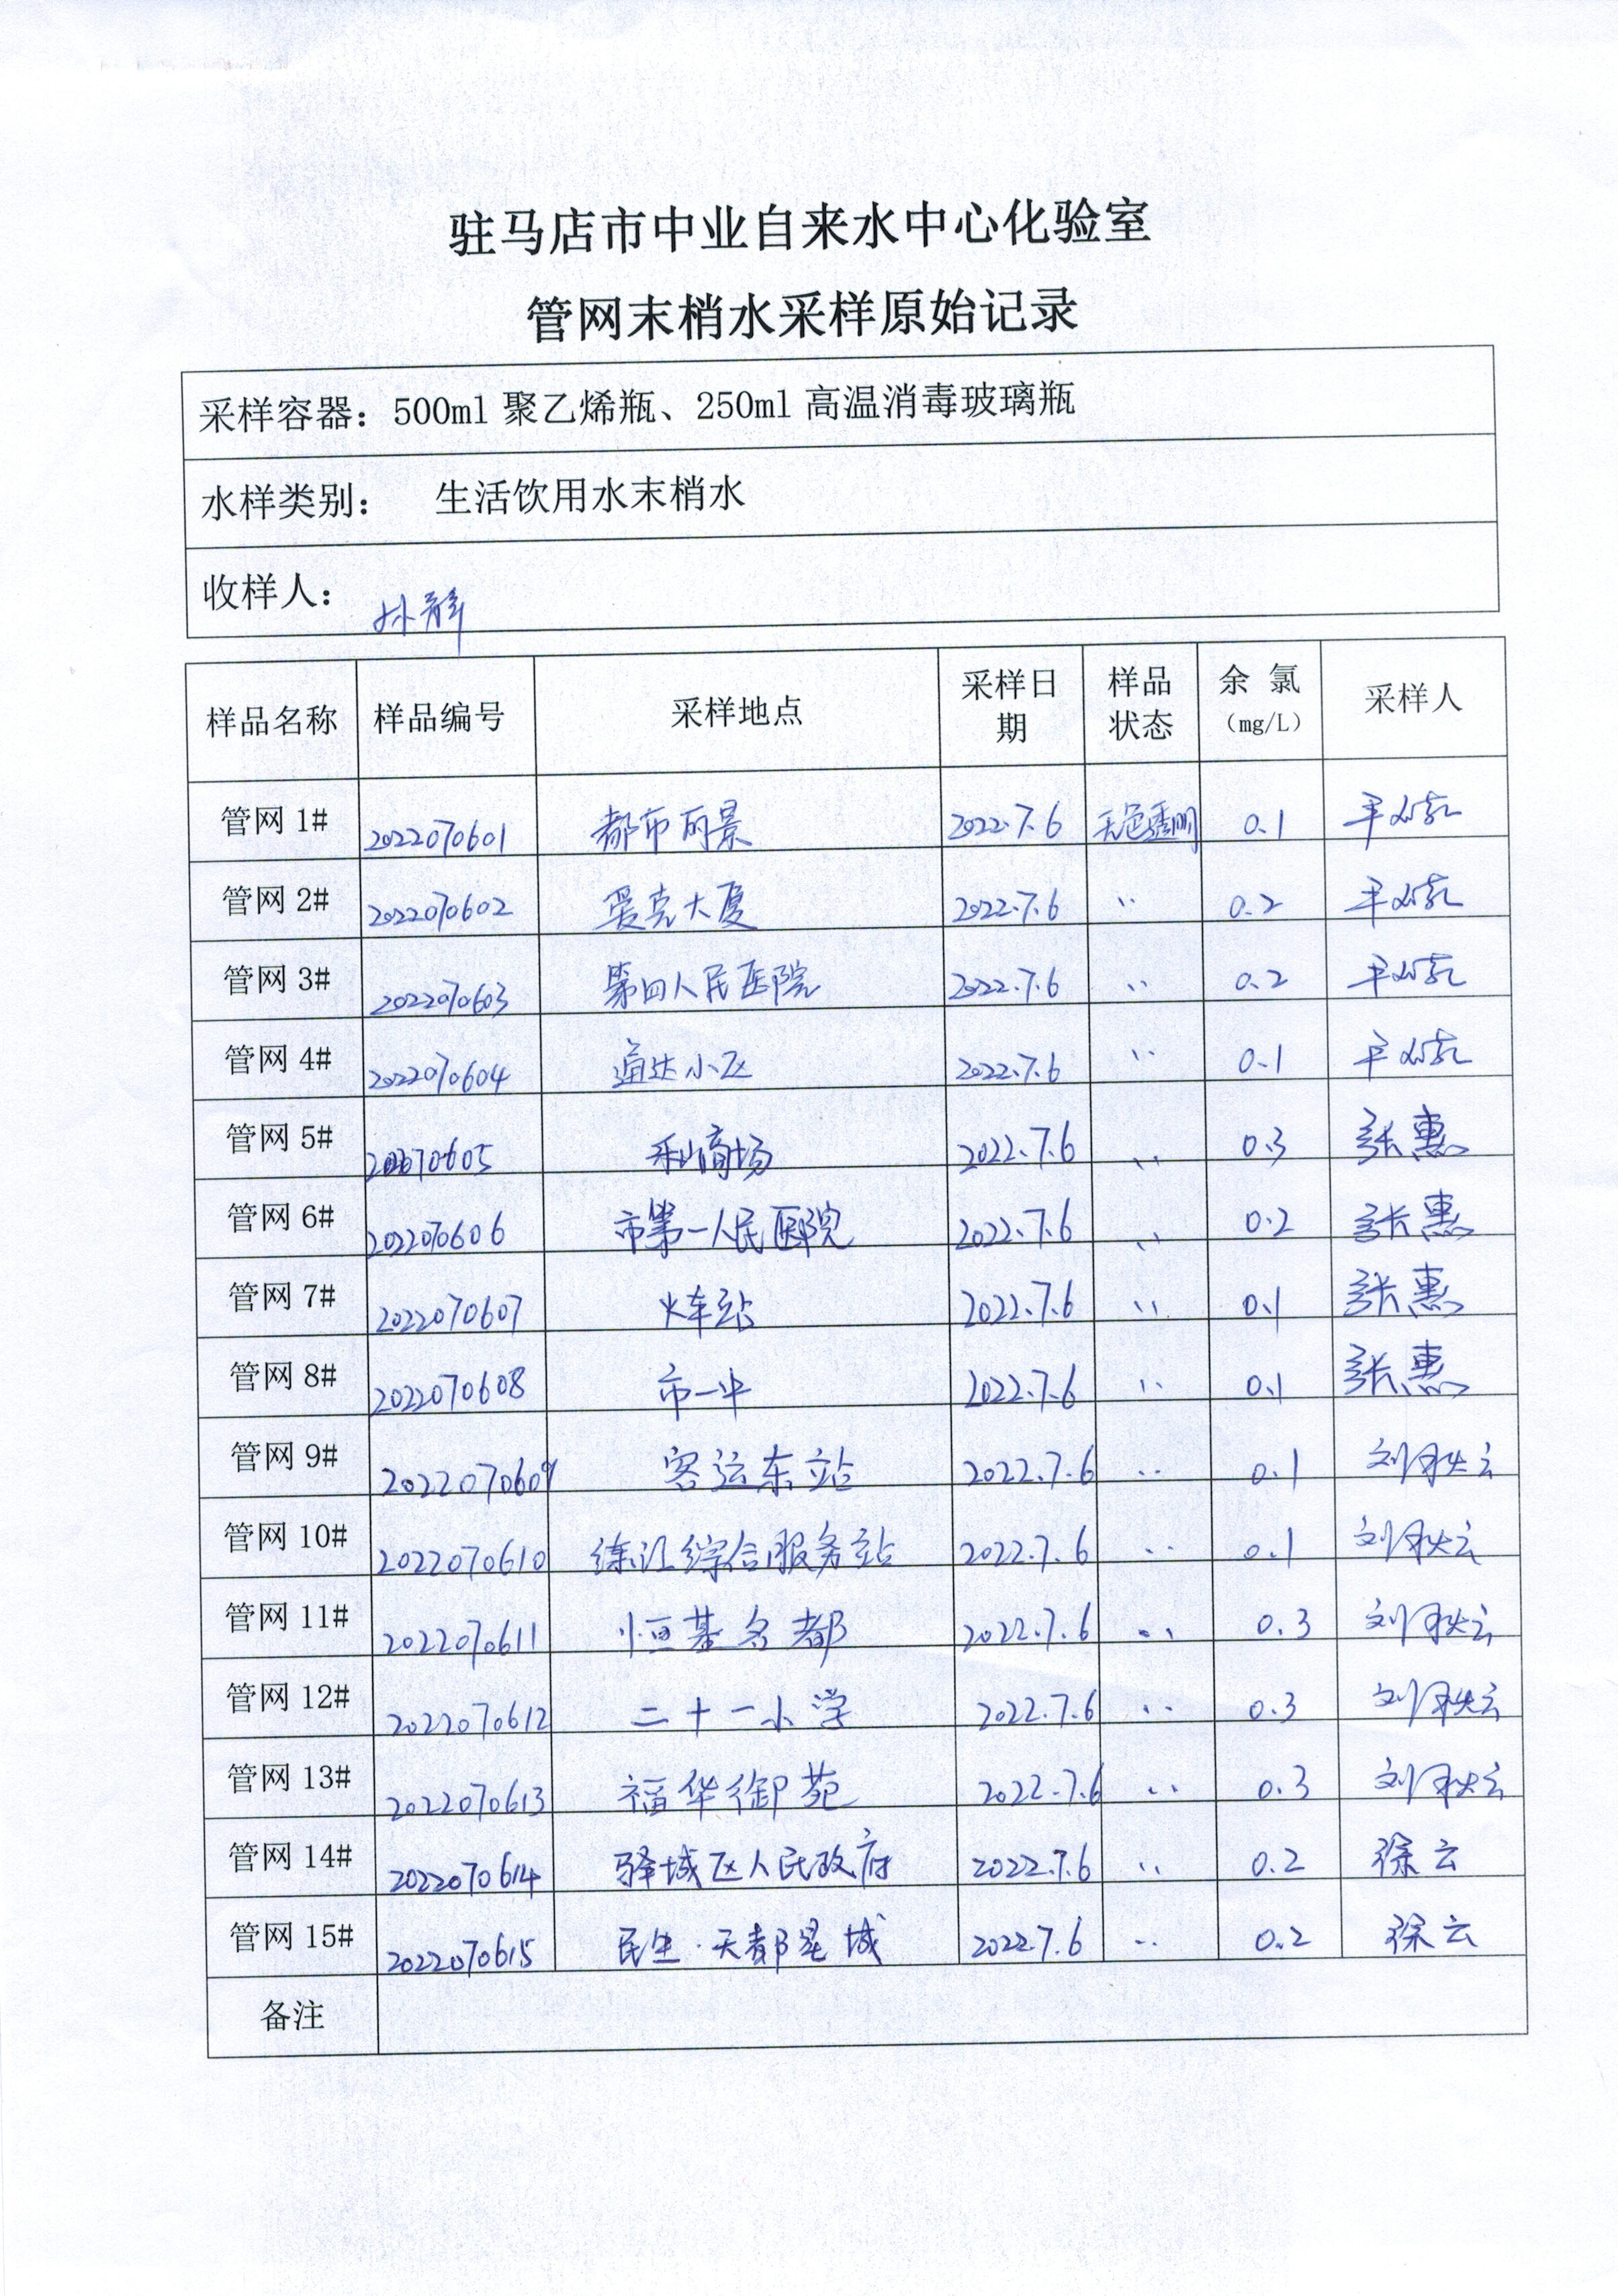 驻马店市中业自来水中心化验室
管网末梢水采样原始记录
采样容器：500ml 聚乙烯瓶、250ml 高温消毒玻璃瓶
水样类别： 生活饮用水末梢水
收样人： 孙静
样品名称 样品编号 采样地点 采样日期 样品状态 余 氯（mg/L） 采样人
管网 1# 2022070601 都市丽景 2022.7.6 无色透明 0.1
管网 2# 2022070602 爱克大厦 2022.7.6 〃 0.2
管网 3# 2022070603 第四人民医院 2022.7.6 〃 0.2
管网 4# 2022070604 通达小区 2022.7.6 〃 0.1
管网 5# 乐山商场 2022.7.6 〃 0.3 张惠
管网 6# 2022070606 市第一人民医院 2022.7.6 〃 0.2 张惠
管网 7# 2022070607 火车站 2022.7.6 〃 0.1 张惠
管网 8# 2022070608 市一中 2022.7.6 〃 0.1 张惠
管网 9# 2022070609 客运东站 2022.7.6 〃 0.1 刘秋云
管网 10# 2022070610 练江综合服务站 2022.7.6 〃 0.1 刘秋云
管网 11# 2022070611 恒基名都 2022.7.6 〃 0.3 刘秋云
管网 12# 2022070612 二十一小学 2022.7.6 〃 0.3 刘秋云
管网 13# 2022070613 福华御苑 2022.7.6 〃 0.3 刘秋云
管网 14# 2022070614 驿城区人民政府 2022.7.6 〃 0.2 徐云
管网 15# 2022070615 民生·天都星城 2022.7.6 〃 0.2 徐云
备注